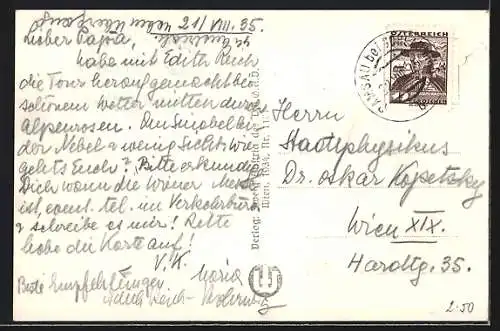 21/VIII. 35.
Lieber Papa,
habe mit Edith Reich
die Tour herauf gemacht bei
schönem Wetter mitten durch
Alpenrosen. Am
der Nebel & wenig Sicht. Wie
geht's Euch? Bitte erkundige
Dich wann die Wiener Messe
ist, event. tel. im Verkehrsbüro
& schreibe es mir! Bitte
hebe die Karte auf!
V. K. Maria
Beste Empfehlungen
Verlag:
Wien, 1934. Nr.
ÖSTERREICH
RAMSAU bei
Herrn
Stadtphysikus
Dr. Oskar Kopetzky
Wien XIX.
Hardtg. 35.
2.50